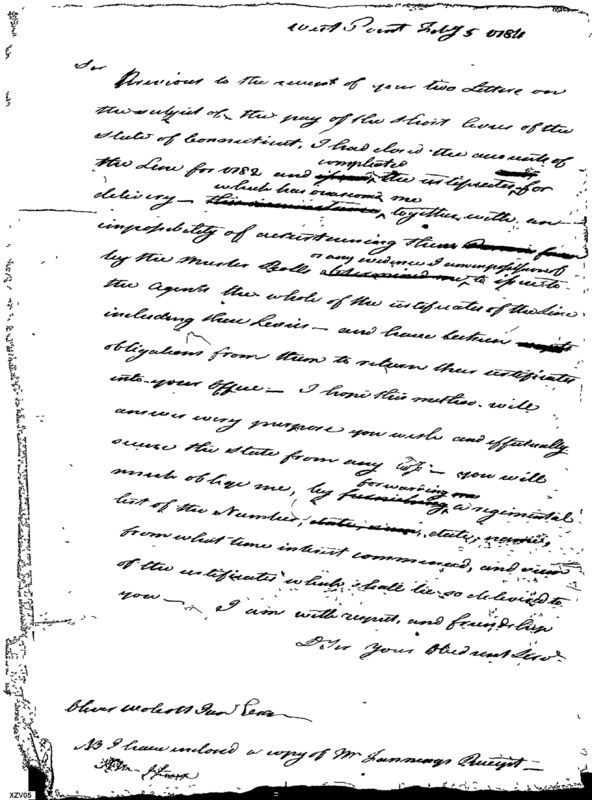 West Point Feby 5 1784
Sir
Previous to the receipt of your two Letters on
the subject of the pay of the Short levies of the
State of Connecticut, I had closed the accounts of
the Line for 1782 and completed the certificates, for
delivery — which has overcome me together with an
impossibility of ascertaining them
by the Muster Rolls or any evidence I am in possession of to issue to
the agents the whole of the certificates of the Line
including these Levies — and have taken
obligations from them to return these certificates
into your office — I hope this method will
answer every purpose you wish and effectually
secure the State from any loss — you will
much oblige me, by forwarding me a regimental
list of the Number, date, names,
from what time interest commenced, and sum
of the certificates which shall be so delivered to
you — I am with respect, and friendship
D Sir Your Obedient Servt
Oliver Wolcott Junr Esqr
NB I have enclosed a copy of Mr Fannings Receipt —